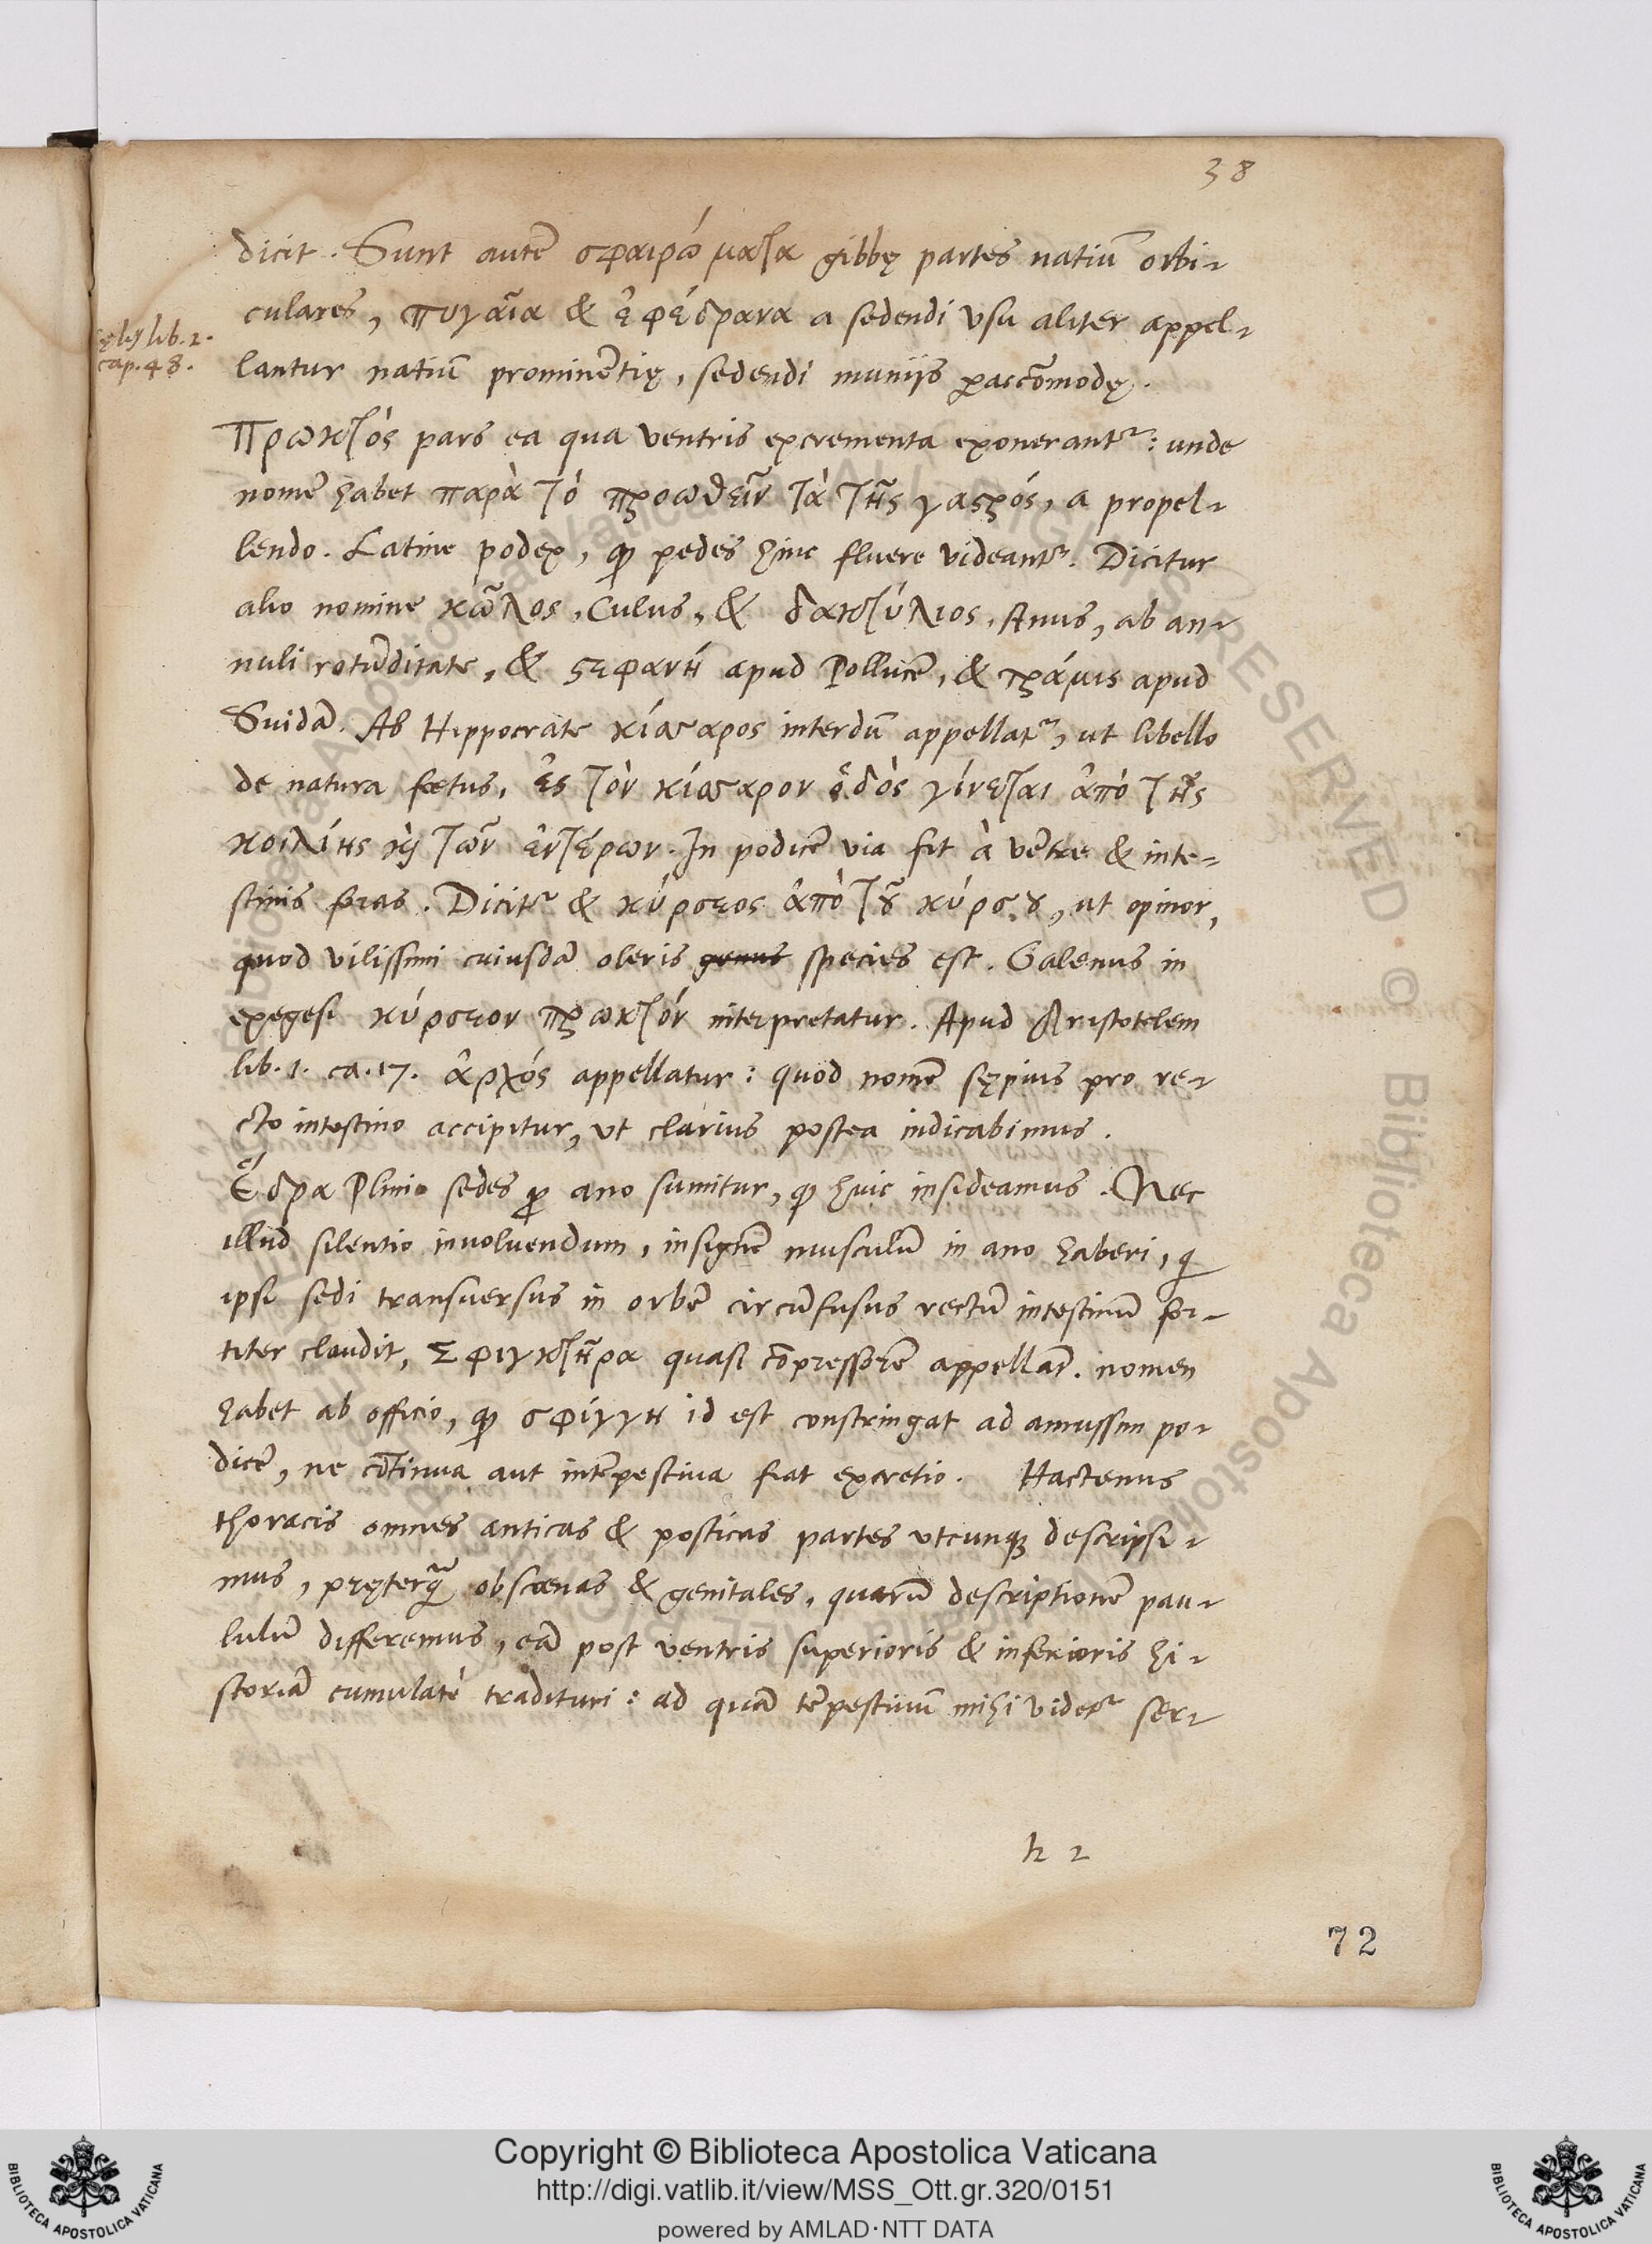 38
dicit. Sunt autē σφαιρώματα gibbę partes natiū orbi-
culares, πυγαῖα & ἐφέδρανα a sedendi vsu aliter appel-
lib. 2.
cap. 48.
lantur natiū prominētię, sedendi munijs ꝑaccōmodę.
Πρωκτὸς pars ea qua ventris excrementa exonerantr: unde
nomē habet παρὰ τὸ προωθεῖν τὰ τῆς γαστρός, a propel-
lendo. Latine podex, ꝙ pedes hinc fluere videantr. Dicitur
alio nomine κῶλος, Culus, & δακτύλιος, Anus, ab an-
nuli rotūditate, & στεφανὴ apud Pollucē, & τράμις apud
Suidā. Ab Hippocrate κίσσαρος interdū appellatr, ut libello
de natura fœtus, ἐς τὸν κίσσαρον ὁδὸς γίνεται ἀπὸ τῆς
κοιλίης καὶ τῶν ἐντέρων. In podicē via fit à vētre & inte-
stinis foras. Dicitr & κύρσεος ἀπὸ τοῦ κύρσου, ut opinor,
quod vilissimi cuiusdā oleris genus species est. Galenus in
exegesi κύρσεον πρωκτόν interpretatur. Apud Aristotelem
lib. 1. ca. 17. ἀρχός appellatur: quod nomē sępius pro re-
cto intestino accipitur, vt clarius postea indicabimus.
Ἕδρα Plinio sedes ꝓ ano sumitur, ꝙ huic insideamus. Nec
illud silentio inuoluendum, insignē musculū in ano haberi, q
ipsi sedi transuersus in orbē circūfusus rectū intestinū for-
titer claudit, Σφιγκτῆρα quasi cōpressorē appellāt. nomen
habet ab officio, ꝙ σφίγγη id est constringat ad amussim po-
dicē, ne cōtinua aut intēpestiua fiat excretio. Hactenus
thoracis omnes anticas & posticas partes vtcunqꝫ descripsi-
mus, pręterꝗ̄ obscœnas & genitales, quarū descriptionē pau-
lulū differemus, eā post ventris superioris & inferioris hi-
storiā cumulatè tradituri: ad quā tēpestiuū mihi videtr ser-
h 2
72
Copyright © Biblioteca Apostolica Vaticana
http://digi.vatlib.it/view/MSS_Ott.gr.320/0151
powered by AMLAD·NTT DATA
BIBLIOTECA APOSTOLICA VATICANA
BIBLIOTECA APOSTOLICA VATICANA